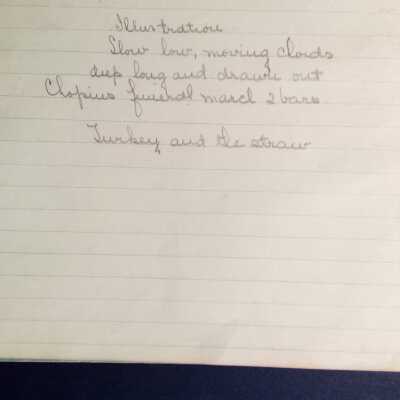 Illustration
Slow low, moving clouds
deep long and drawn out
Chopins funeral march 2 bars
Turkey and the straw